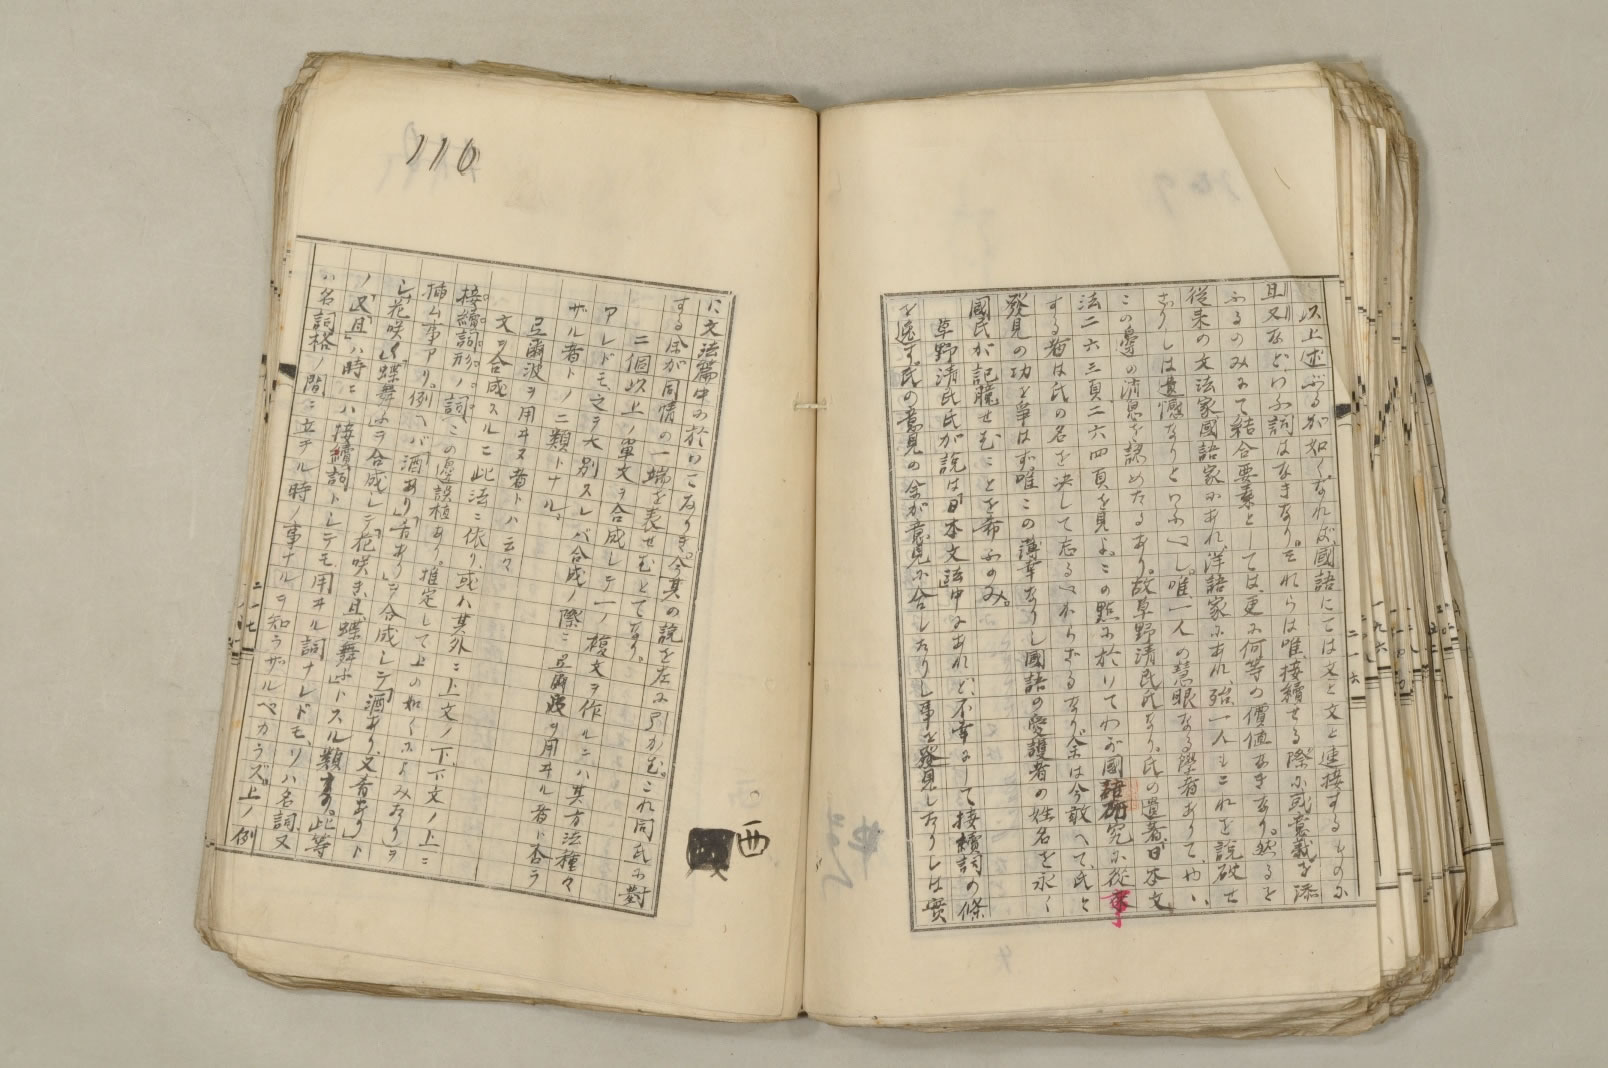 以上述ぶるが如くなれば、國語にては文と文と連接するものに
且、又などいふ詞はなきなり。それらは唯、接續せる際に或意義を添
ふるのみにて結合要素としては、更に何等の價値なきなり。然るを
從来の文法家國語家にあれ、洋語家にあれ、殆、一人もこれを説破せ
ざりしは遺憾なりといふべし。唯、一人の慧眼なる學者ありて、やゝ
この邊の消息を認めたるあり。故草野清民氏なり。氏の遺著、日本文
法二六三頁二六四頁を見よ。この點に於けてわが國語研究に從事
する者は氏の名を決して忘るべからざるなり。余は今敢へて、氏と
發見の功を爭はず、唯この薄幸なりし國語の愛護者の姓名を永く
國民が記臆せむことを希ふのみ。
草野清民氏が説は「日本文法」中にあれど、不幸にして接續詞の條
を逸す。氏の意見の余が意見に合したりし事を發見したりしは實
二一六
に文法篇中に於いてなりき。今其の説を左に引かむ。これ同氏に對
する余が同情の一端を表せむとてなり。
二個以上ノ單文ヲ合成シテ一ノ複文ヲ作ルニハ其方法種々
アレドモ、之ヲ大別スレバ合成ノ際ニ弖爾波ヲ用ヰル者ト否ラ
ザル者トノ二類トナル、
弖爾波ヲ用ヰヌ者トハ云々
文ヲ合成スルニ此法ニ依リ、或ハ其外ニ上文ノ下下文ノ上ニ
接續詞形ノ詞この邊誤植あり。推定して上の如くによみたり
插ム事アリ。例ヘバ「酒あり」「肴あり」ヲ合成シテ「酒あり、又肴あり」ト
シ、「花咲く」「蝶舞ふ」ヲ合成シテ「花咲き、且、蝶舞ふ」トスル類ナリ。此等
ノ「又」「且」ハ時ニハ接續詞トシテモ用ヰル詞ナレドモ、ソハ名詞又
ハ名詞格ノ間ニ立テル時ノ事ナルヲ知ラザルベカラズ。上ノ例
二一七
116
西